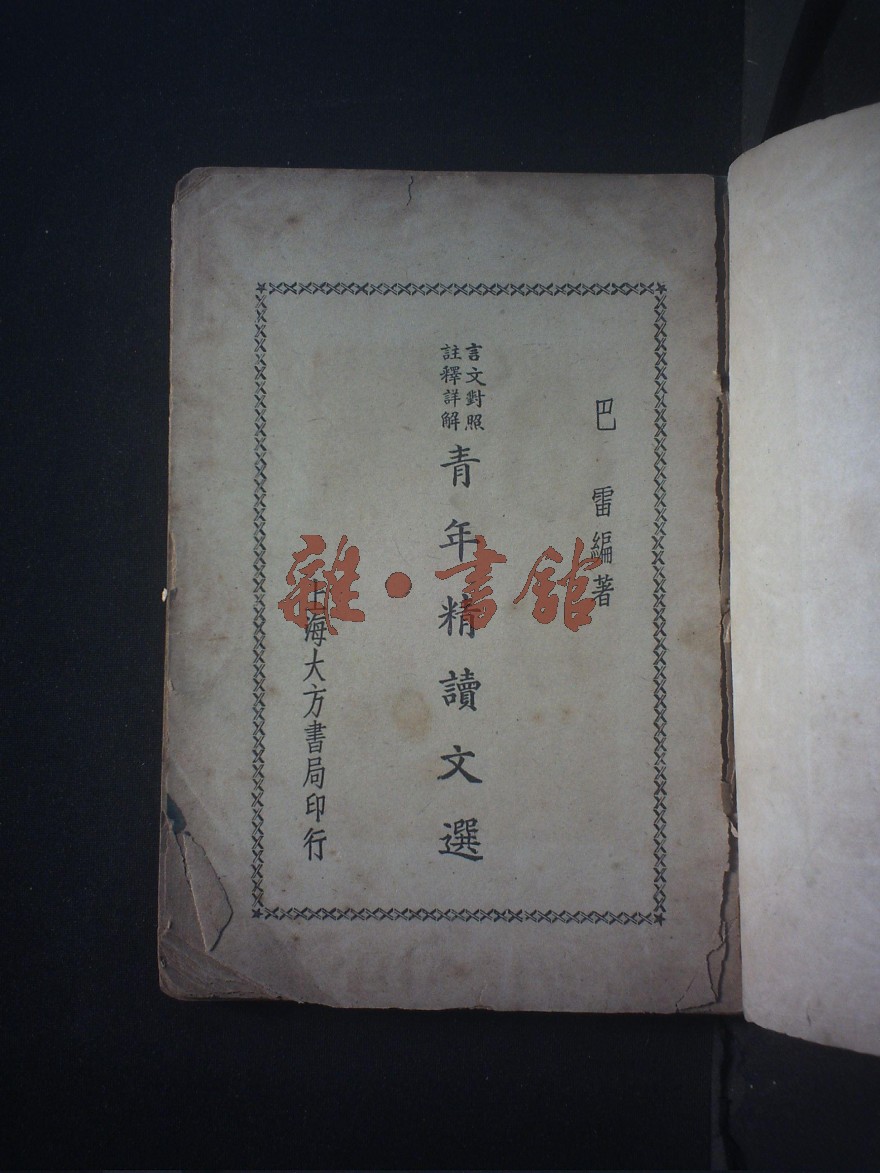 巴雷編著
言文對照
註釋詳解
青年精讀文選
上海大方書局印行
雜·書館